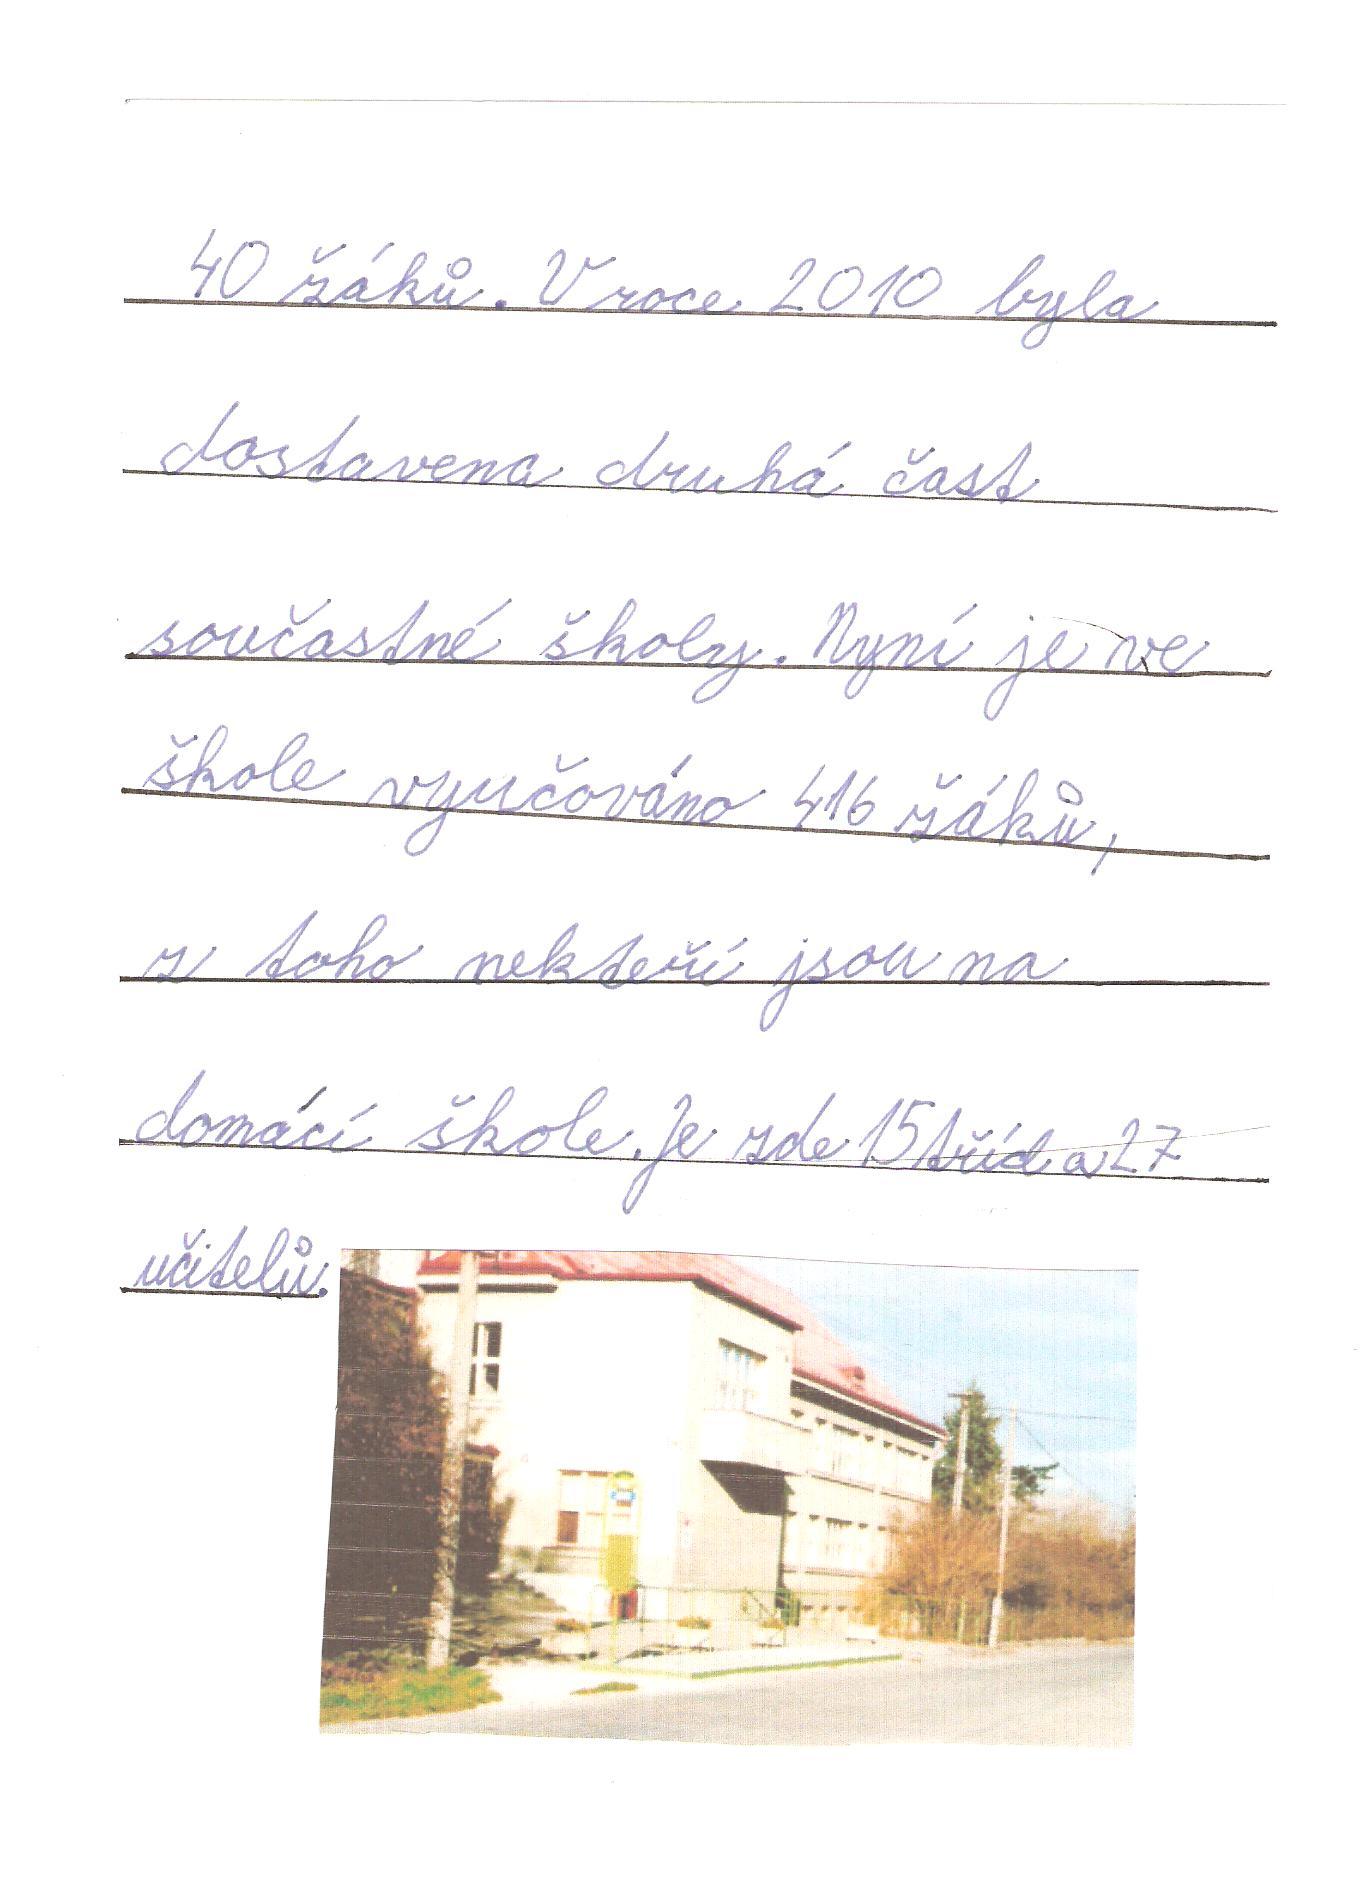 40 žáků. V roce 2010 byla
dostavena druhá část
součastné školy. Nyní je ve
škole vyučováno 416 žáků,
z toho nekteří jsou na
domácí škole. Je zde 15 tříd a 27
učitelů.